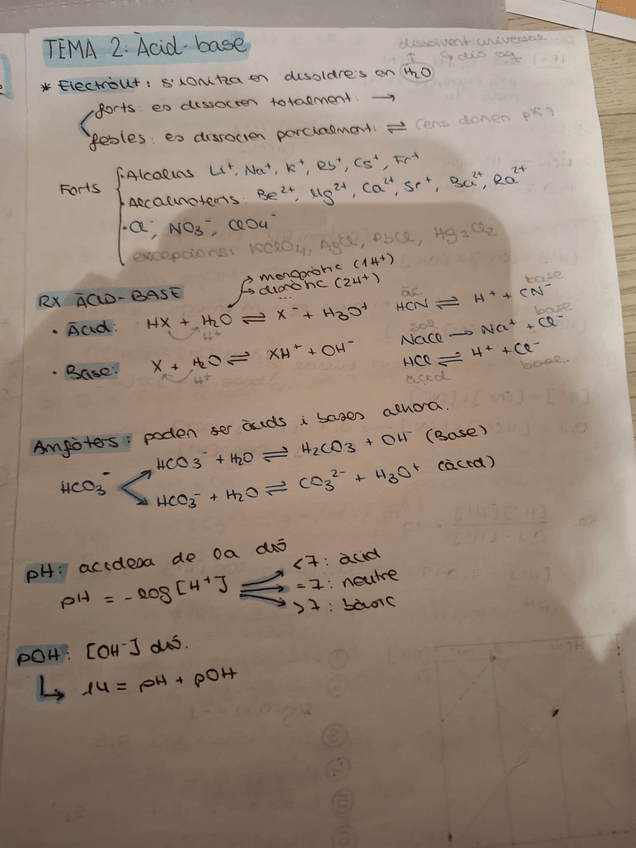 TEMA 2: Àcid-base
dissolvent universal
↳ dis aq
* Electròlit: s'ionitza en dissoldre's en H2O
forts: es dissocien totalment: →
febles: es dissocien parcialment: ⇌ (ens donen pK?
Forts
· Alcalins Li+, Na+, K+, Rb+, Cs+, Fr+
· Alcalinoterris: Be2+, Mg2+, Ca2+, Sr2+, Ba2+, Ra2+
· Cl-, NO3-, ClO4-
excepcions: KClO4, AgCl, PbCl, Hg2Cl2
RX ÀCID-BASE
→ monopròtic (1H+)
→ dipròtic (2H+)
...
· Àcid: HX + H2O ⇌ X- + H3O+
H+
· Base: X + H2O ⇌ XH+ + OH-
H+
àc base
HCN ⇌ H+ + CN-
sal base
NaCl → Na+ + Cl-
HCl ⇌ H+ + Cl-
àcid base
Amfòters: poden ser àcids i bases alhora.
HCO3-
HCO3- + H2O ⇌ H2CO3 + OH- (Base)
HCO3- + H2O ⇌ CO3 2- + H3O+ (àcid)
pH: acidesa de la dió
pH = -log [H+]
<7: àcid
=7: neutre
>7: bàsic
pOH: [OH-] dió.
↳ 14 = pH + pOH